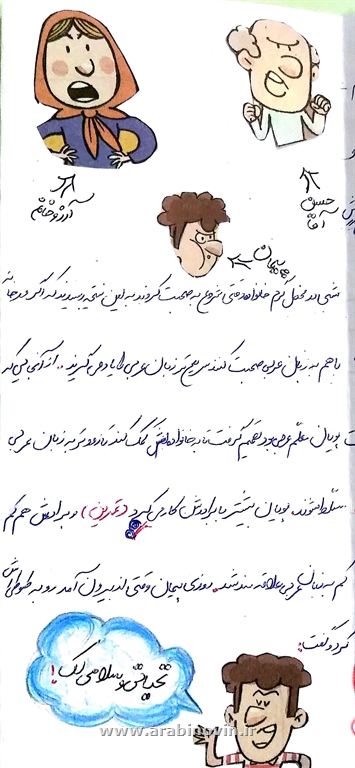 آرزو خانم
حسن آقا
پیمان
شبی در محفل گرم خانواده وقتی شروع به صحبت کردند به این نتیجه رسیدند که اگر در خانه
با هم به زبان عربی صحبت کنند سریع تر زبان عربی را یاد می گیرند. از آنجایی که
پویان معلم عربی بود تصمیم گرفت تا به خانواده اش کمک کند تا زودتر به زبان عربی
مسلط شوند. پویان بیشتر با برادرش کار می کرد (تمرین) و برادرش هم کم
کم به زبان عربی علاقه مند شد. روزی پیمان وقتی از بیرون آمد رو به
کرد و گفت:
تحیاتی و سلامی لک!
www.arabinovin.ir